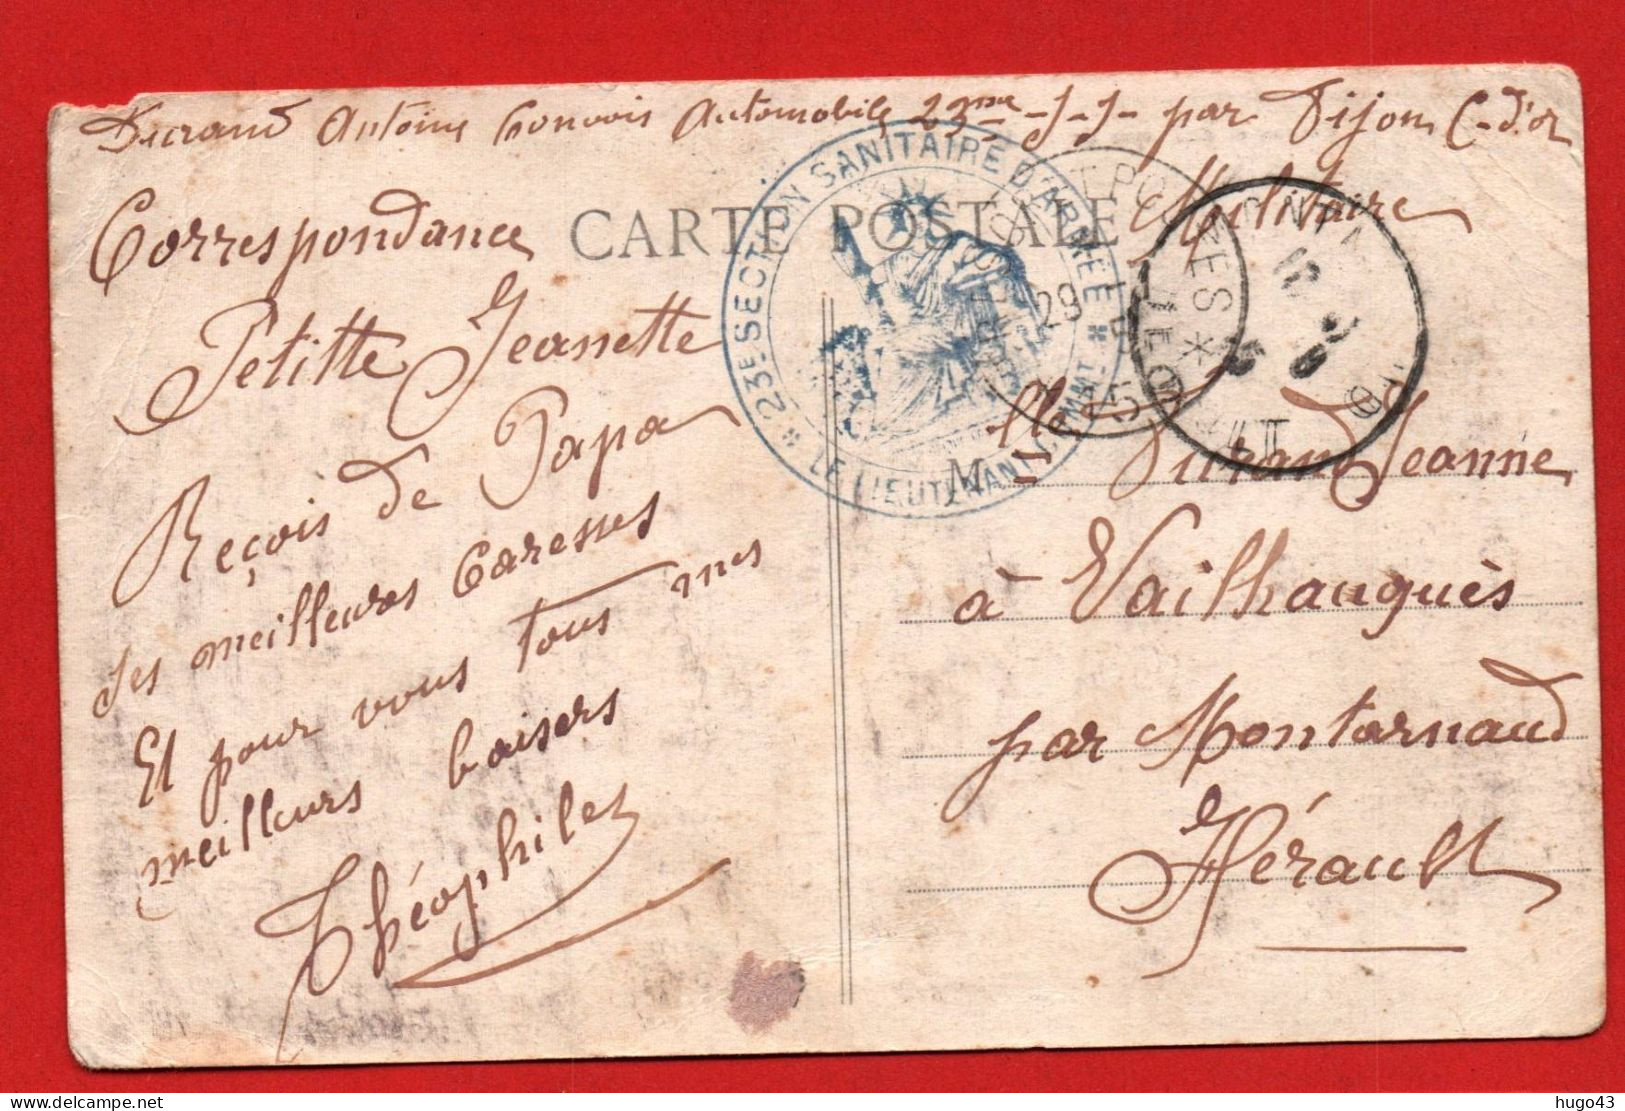 Durand Antoine Convois Automobile 23ème S. S. par Dijon C. d'or
Correspondance
Militaire
CARTE POSTALE
Petitte Jeanette
Reçois de Papa
ses meilleures Caresses
Et pour vous tous mes
meilleurs baisers
Théophile
23e SECTION SANITAIRE D'ARMÉE
LE LIEUTENANT COMMT
29
15
Mlle Durand Jeanne
à Vailhauquès
par Montarnaud
Hérault
hugo43